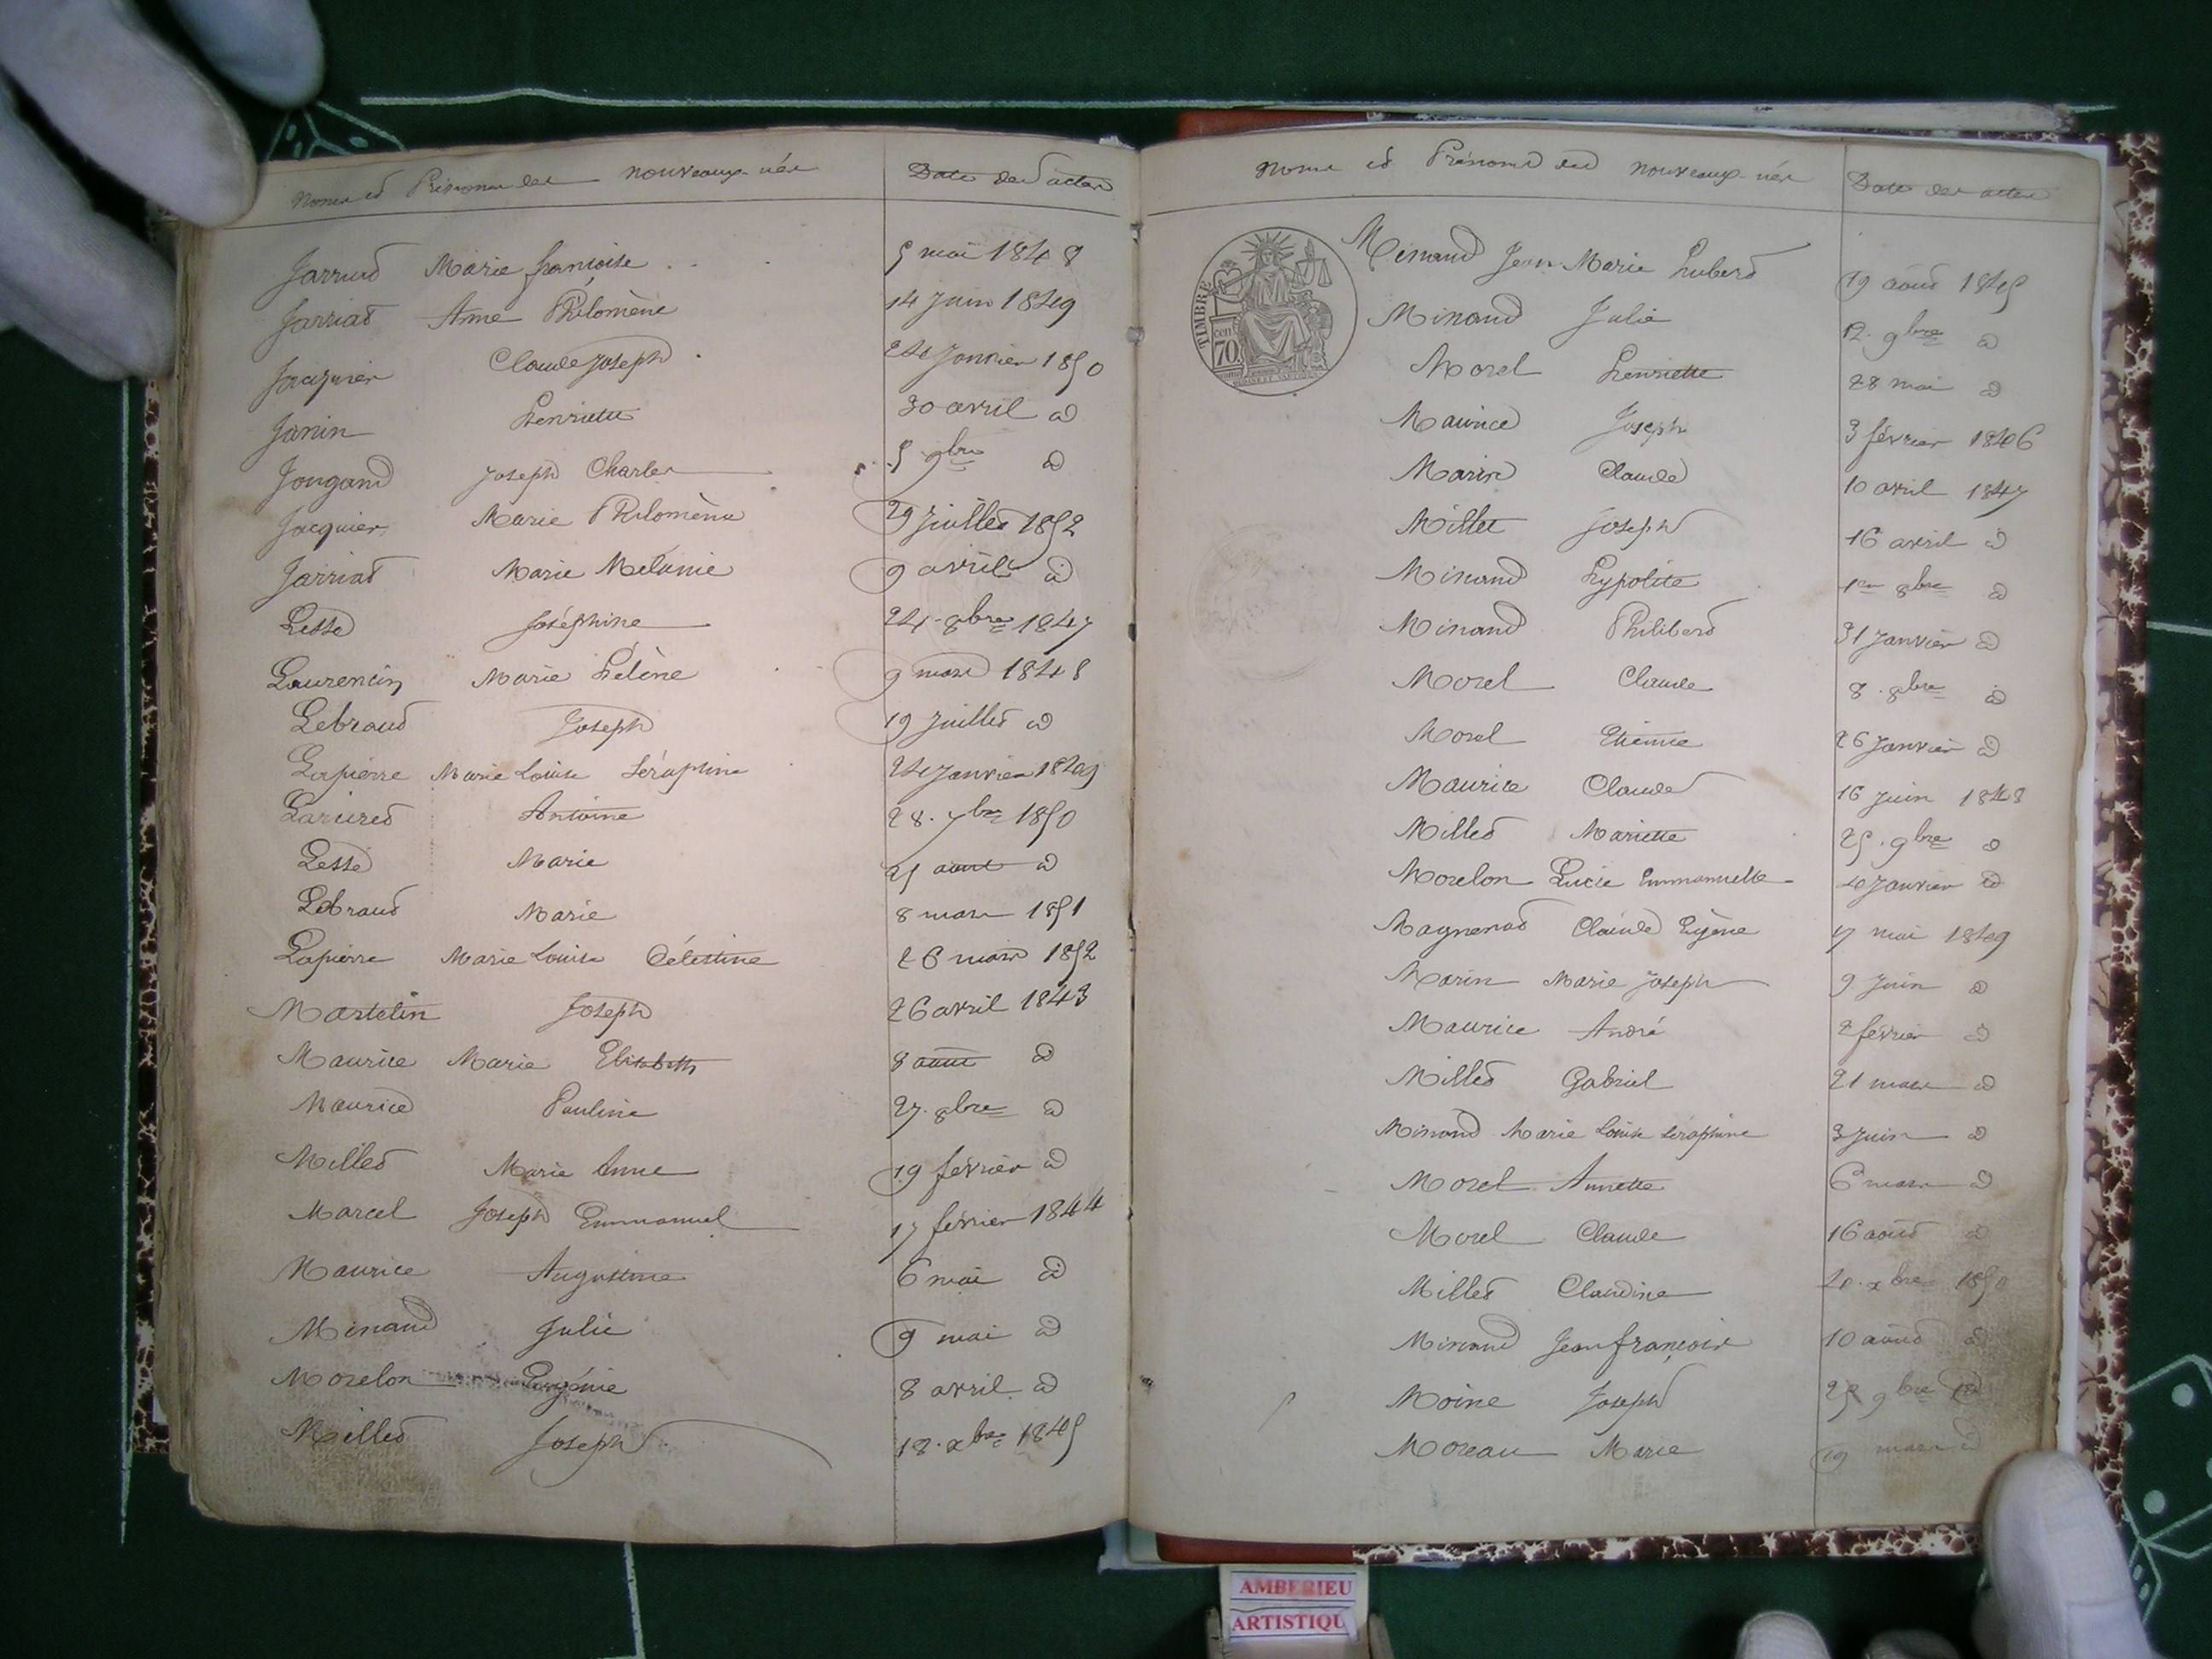 Noms et Prénoms des nouveaux-nés Date des actes
Jarrud Marie françoise 5 mai 1848
Jarriat Anne Philomène 14 Juin 1849
Jacquier Claude Joseph 24 Janvier 1850
Janin Henriette 30 avril id
Jougand Joseph Charles 5 9bre id
Jacquier Marie Philomène 29 Juillet 1852
Jarriat Marie Mélanie 9 avril id
Lesse Joséphine 24. 8bre 1847
Laurencin Marie Hélène 9 mars 1848
Lebraud Joseph 19 Juillet id
Lapierre Marie Louise Séraphine 24 Janvier 1849
Antoine 28. 7bre 1850
Lesse Marie 21 aout id
Lebraud Marie 8 mars 1851
Lapierre Marie Louise Célestine 26 mars 1852
Martelin Joseph 26 avril 1843
Maurice Marie Elisabeth 8 aout id
Maurice Pauline 27. 8bre id
Millet Marie Anne 19 février id
Marcel Joseph Emmanuel 17 février 1844
Maurice Augustine 6 mai id
Minand Julie 9 mai id
Morelon Eugénie 8 avril id
Millet Joseph 18. xbre 1845
Noms et Prénoms des nouveaux-nés Date des actes
TIMBRE
70 cen
Minand Jean Marie Hubert 19 août 1845
Minand Julie 12. 9bre id
Morel Henriette 28 mai id
Maurice Joseph 3 février 1846
Marin Claude 10 avril 1847
Millet Joseph 16 avril id
Minand Hypolite 1er 8bre id
Minand Philibert 31 Janvier id
Morel Claude 8. 8bre id
Morel Etienne 26 Janvier id
Maurice Claude 16 Juin 1848
Millet Mariette 25. 9bre id
Morelon Lucie Emmanuelle Janvier id
Magnenat Claude Eugène 7 mai 1849
Marin Marie Joseph 9 Juin id
Maurice André 2 février id
Millet Gabriel 21 mars id
Minand Marie Louise Séraphine 3 Juin id
Morel Annette 6 mars id
Morel Claude 16 août id
Millet Claudine xbre 1850
Minand Jean françois 10 août id
Moine Joseph 25 9bre id
Moreau Marie 19 mars id
AMBERIEU
ARTISTIQU